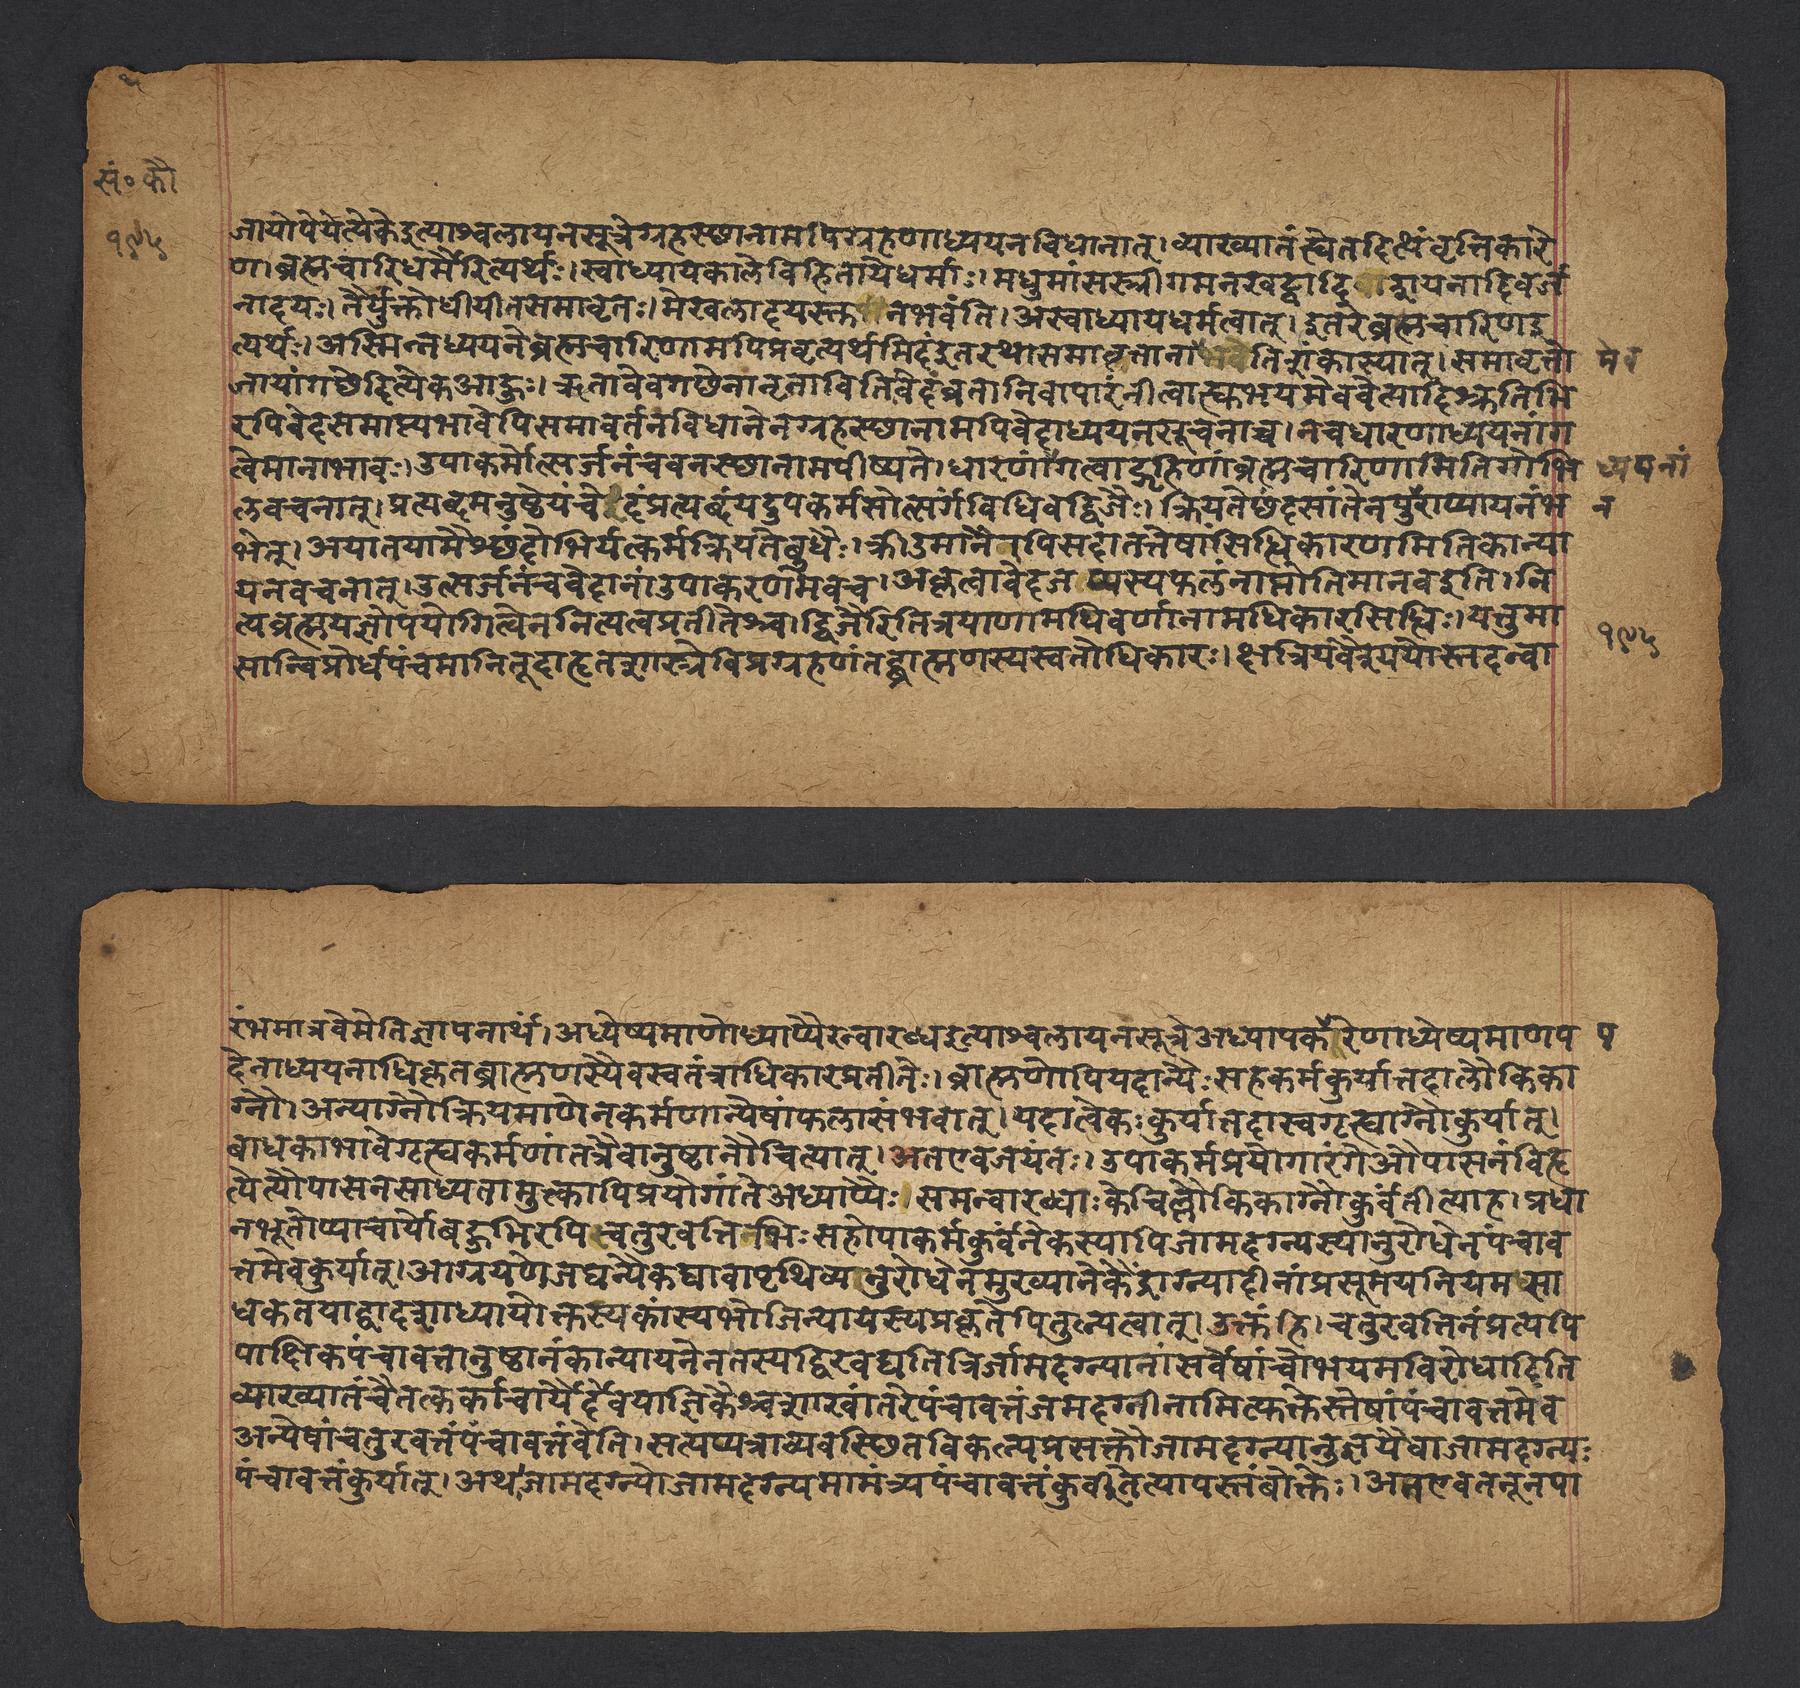 सं॰कौ
१९५
जायोपेयेत्येकेइत्याश्वलायनसूत्रेगृहस्छानामपिग्रहणाध्ययनविधानात्। व्याख्यातंत्वेतदित्थंवृत्तिकारे
ण। ब्रह्मचारिधर्मैरित्यर्थः। स्वाध्यायकालेविहितायेधर्माः। मधुमांसस्त्रीगमनखट्वादि शयनादिवर्ज
नादयः। तैर्युक्तोधीयीतसमावृतः। मेखलादयस्त नभवंति। अस्वाध्यायधर्मत्वात्। इतरेब्रह्मचारिणइ
त्यर्थः। अस्मिन्नध्ययनेब्रह्मचारिणामपिप्रवृत्यर्थमिदंइतरथासमावृत्तानामेवेतिशंकास्यात्। समावृत्तो मेव
जायांगछेदित्येकआहुः। ऋतावेवगछेनानृताविति वेदंव्रतानिवापारंनीत्वाह्युभयमेववेत्यादिश्रुतिभि
रपिवेदसमाप्त्यभावेपिसमावर्तनविधानेनगृहस्छानामपिवेदाध्ययनसूचनाच्च। नचधारणाध्ययनांग
त्वेमानाभावः। उपाकर्मोत्सर्जनंचवनस्छानामपीष्यते। धारणांगत्वाद्गृहिणांब्रह्मचारिणामितिगोभि ध्ययनां
लवचनात्। प्रत्यब्दमनुष्ठेयंचे दंप्रत्यब्दंयदुपकर्मसोत्सर्गविधिवद्द्विजैः। क्रियतेछंदसांतेनपुराप्यायनंभ न
भेत्। अयातयामैश्छंदोभिर्यत्कर्मक्रियतेबुधैः। क्रीडमानैरपिसदातत्तेषांसिद्धिकारणमितिकात्या
यनवचनात्। उत्सर्जनंचवेदानांउपाकरणमेवच। अकृत्वावेदज प्यस्यफलंनाप्नोतिमानवइति। नि
त्यब्रह्मयज्ञोपयोगित्वेननित्यत्वप्रतीतेश्च। द्विजैरितित्रयाणामपिवर्णानामधिकारसिद्धिः। यत्तुमा
सान्विप्रोर्धपंचमानितूदाहृतशास्त्रेविप्रग्रहणंतद्ब्राह्मणस्यस्वतोधिकारः। क्षत्रियवैश्ययोस्तदन्वा
१९५
रंभमात्रवेमेतिज्ञापनार्थं। अध्येष्यमाणोध्याप्यैरन्वारब्धइत्याश्वलायनसूत्रेअध्यापकोरेणाध्येष्यमाणप प
देनाध्ययनाधिकृतब्राह्मणस्यैवस्वतंत्राधिकारप्रतीतेः। ब्राह्मणोपियदान्यैःसहकर्मकुर्यात्तदालौकिका
ग्नौ। अन्याग्नौक्रियमाणेनकर्मणान्येषांफलासंभवात्। यदात्वेकःकुर्यात्तदास्वगृह्याग्नौकुर्यात्।
बाधकाभावेगृह्यकर्मणांतत्रैवानुष्ठानौचित्यात्। अतएवजयंतः। उपाकर्मप्रयोगारंगेऔपासनंविहृ
त्येत्यौपासनसाध्यतामुत्कापिप्रयोगांतेअध्याप्यैः। समन्वारब्धाःकेचिल्लौकिकाग्नौकुर्वंतीत्याह। प्रधा
नभूतोप्याचार्योबहुभिरपि चतुरवत्तिनभिःसहोपाकर्मकुर्वन्नेकस्यापिजामदग्न्यस्यानुरोधेनपंचाव
त्तमेवकुर्यात्। आग्रयणेजघन्येकद्यावापृथिव्यनुरोधेनमुख्यानेकैंद्राग्न्यादीनांप्रसूमयनियमसा
धकतयाद्वादशाध्यायोक्तस्यकांस्यभोजिन्यायस्यप्रकृतेपितुल्यत्वात्। उक्तंहि। चतुरवत्तिनंप्रत्यपि
पाक्षिकपंचावत्तानुष्ठानंकात्यायनेनतस्यद्विरवद्यतित्रिर्जामदग्न्यानांसर्वेषांचोभयमविरोधादिति
व्याख्यातंचैतत्कर्काचार्यैर्देवयाज्ञिकैश्चशाखांतरेपंचावत्तंजमदग्नीनामित्युक्तेस्तेषांपंचावत्तमेव
अन्येषांचतुरवत्तंपंचावत्तंवेति। सत्यप्यत्राव्यवस्छितविकल्पप्रसक्तौजामदग्न्यानुज्ञयैवाजामदग्न्यः
पंचावत्तंकुर्यात्। अथाजामदग्न्योजामदग्न्यमामंत्र्यपंचावत्तंकुर्वीतेत्यापस्तंबोक्तेः। अतएवतनूनपा